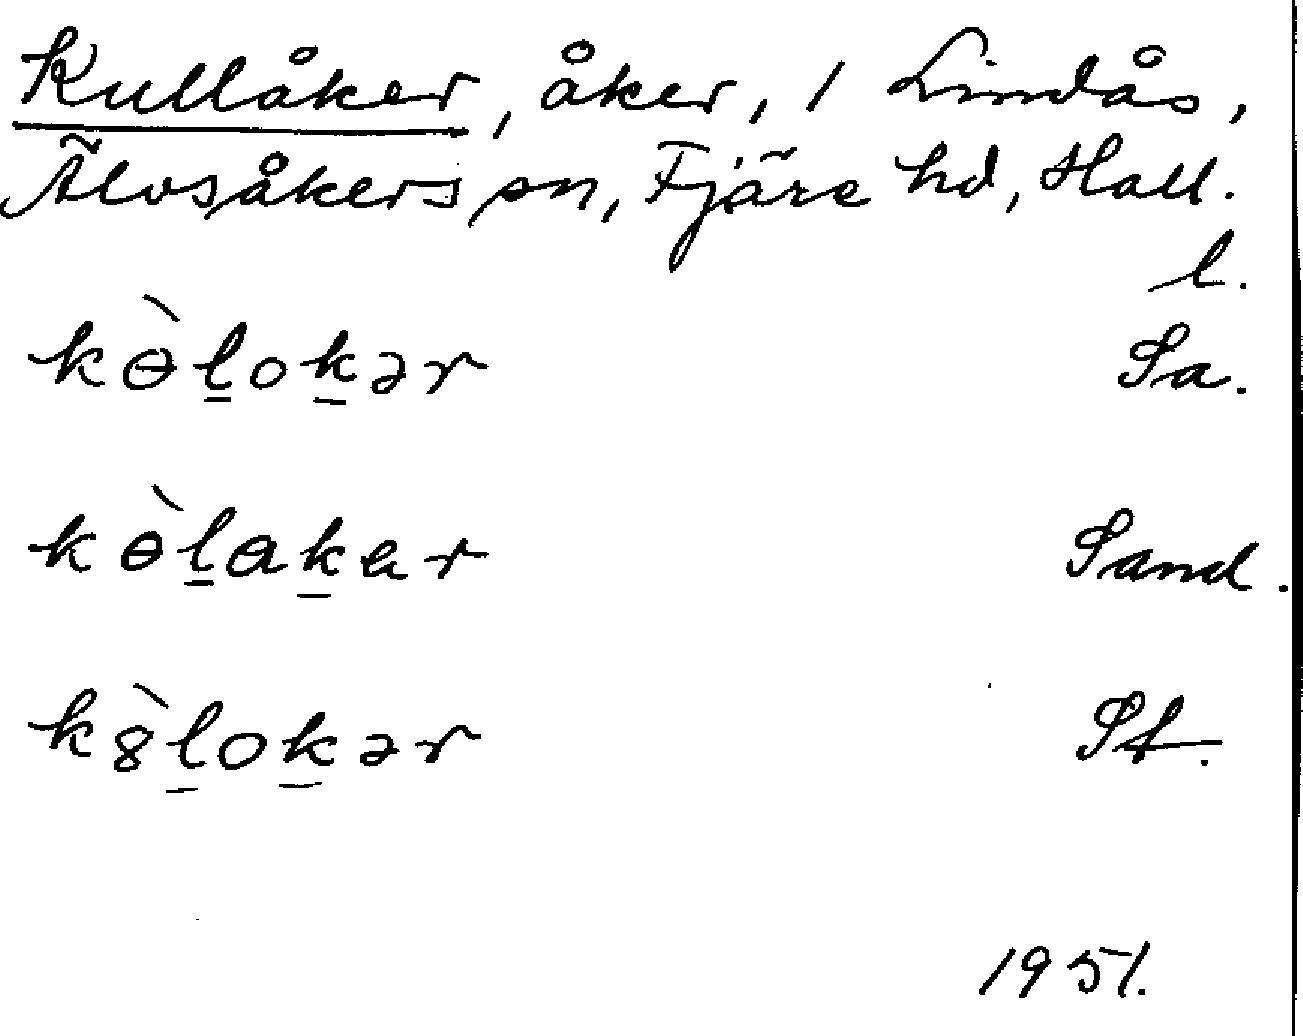 Kullåker, åker, 1 Lindås,
Älvsåkers sn, Fjäre hd, Hall.
l.
kɵ̀l̲ok̲ər Sa.
kɵ̀l̲ɑk̲ar Sand.
k8̀l̲ok̲ər St.
1951.